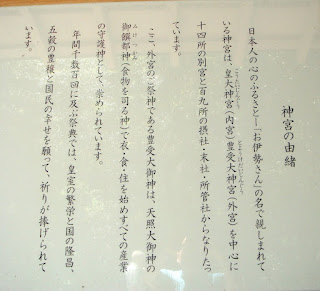 神宮の由緒
日本人の心のふるさと―「お伊勢さん」の名で親しまれて
いる神宮は、皇大神宮(内宮)豊受大神宮(外宮)を中心に
十四所の別宮と百九所の摂社・末社・所管社からなりたっ
ています。
ここ外宮のご祭神である豊受大御神は、天照大御神の
御饌都神(食物を司る神)で衣・食・住を始めすべての産業
の守護神として、崇められています。
年間千数百回に及ぶ祭典では、皇室の繁栄と国の隆昌、
五穀の豊穣と国民の幸せを願って、祈りが捧げられて
います。